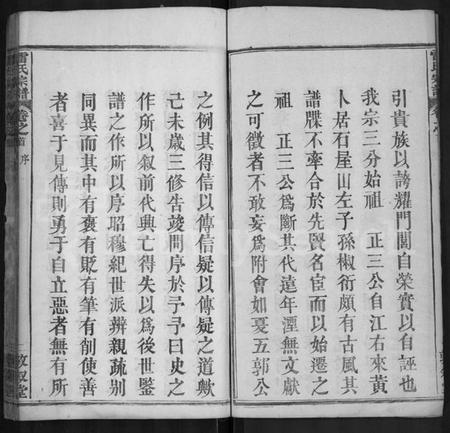 引貴族以誇耀門閥自榮實以自誣也
我宗三分始祖　正三公自江右來黃
人居石屋山左子孫椒衍頗有古風其
譜牒不牽合於先賢名宦而以始遷之
祖　正三公為斷其代遠年湮無文獻
之可徵者不敢妄為附會如夏五郭公
之例其得信以傳信疑以傳疑之道歟
己未歲三修告竣問序於予予曰史之
作所以叙前代興亡得失以為後世鑒
譜之作所以序昭穆紀世派辨親疏别
同異而其中有褒有貶有筆有削使善
者喜于見傳則勇于自立惡者無有所
雷氏宗譜
卷之首
序
敦叙堂